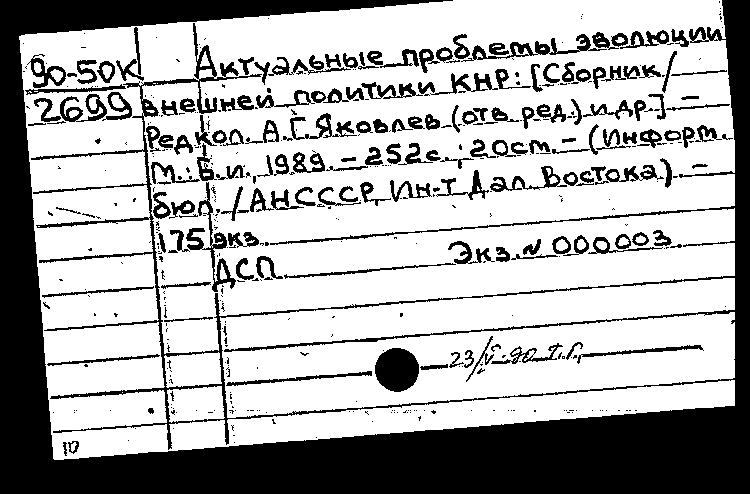 90-50К Актуальные проблемы эволюции
2699 внешней политики КНР: [Сборник /
Редкол. А.Г. Яковлев (отв. ред.) и др.]. –
М.: Б.и., 1989. – 252 с.; 20 см. – (Информ.
бюл. / АН СССР, Ин-т Дал. Востока). –
175 экз.
ДСП Экз. № 000003.
23/V-90 т.г.
10